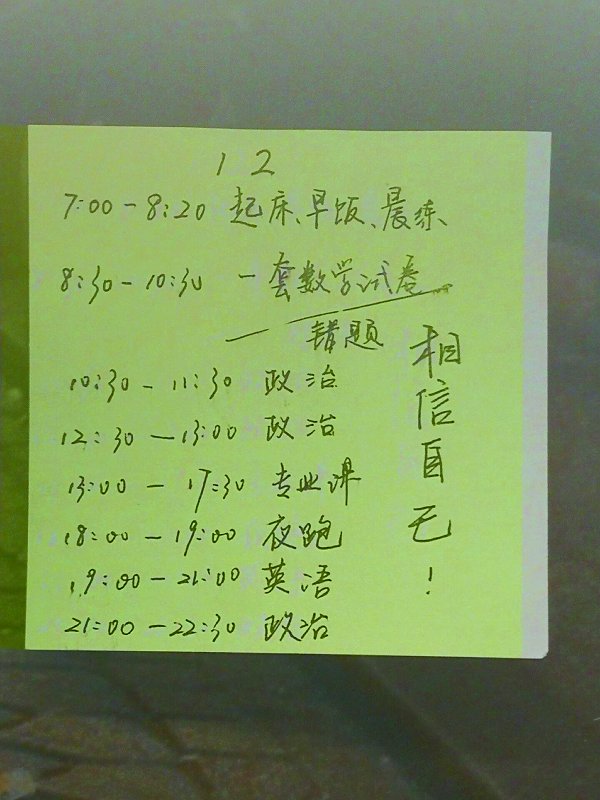 12
7:00-8:20 起床、早饭、晨练
8:30-10:30 一套数学试卷
— 错题
10:30-11:30 政治
12:30-13:00 政治
13:00-17:30 专业课
18:00-19:00 夜跑
19:00-21:00 英语
21:00-22:30 政治
相信自己!